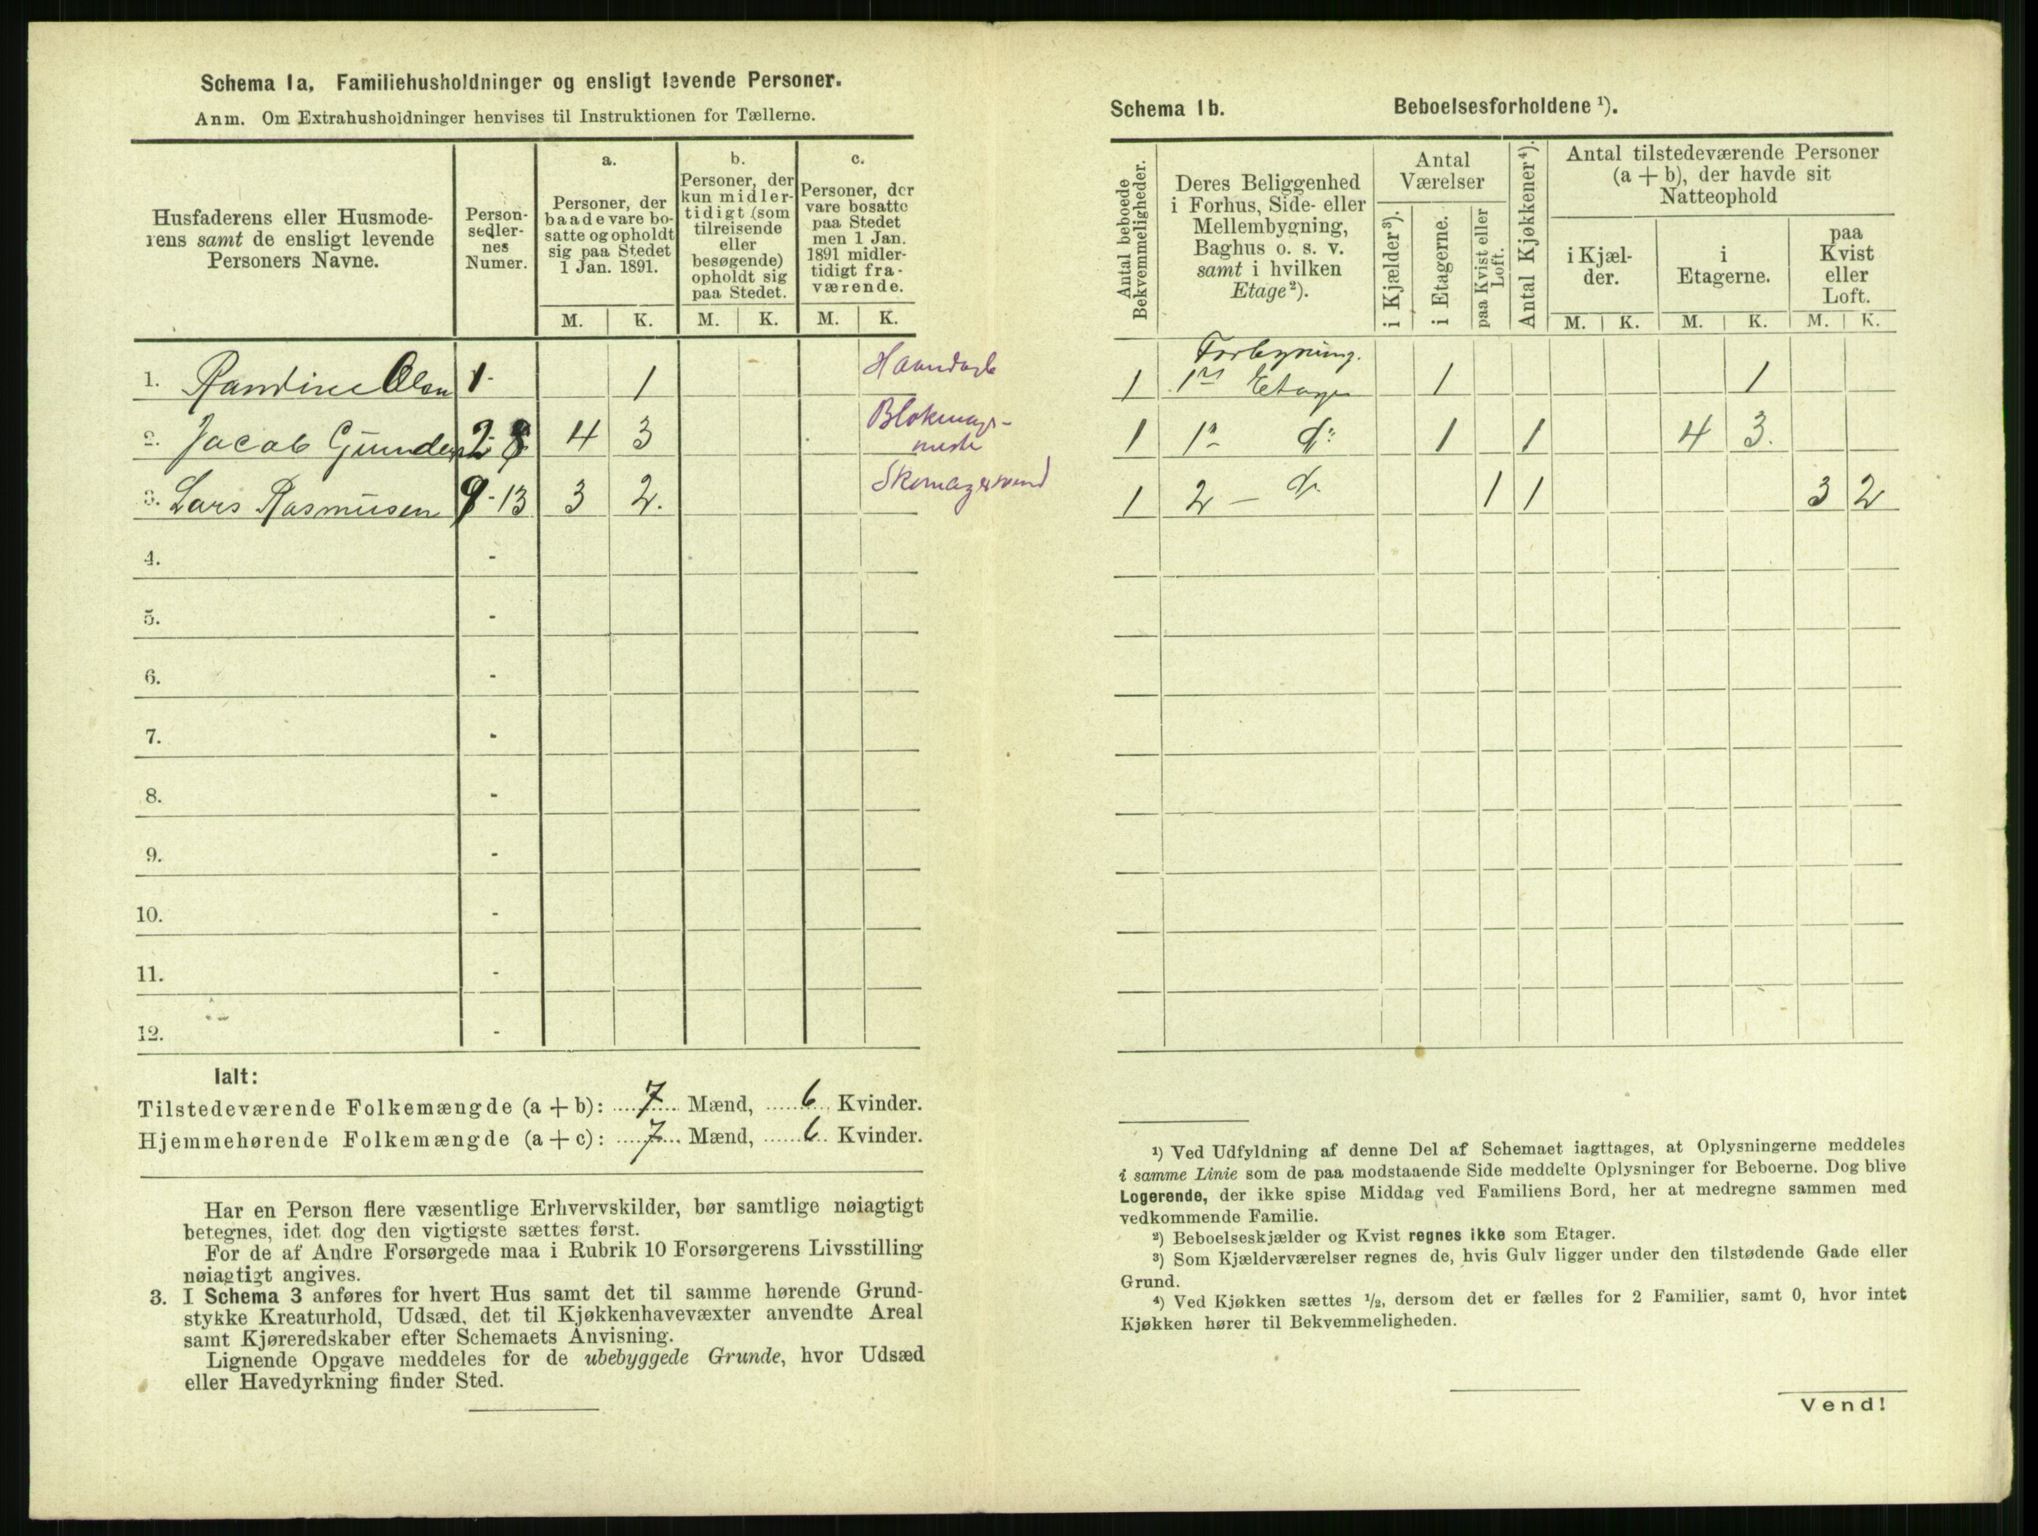 Schema 1a. Familiehusholdninger og ensligt levende Personer.
Anm. Om Extrahusholdninger henvises til Instruktionen for Tællerne.
Husfaderens eller Husmoderens samt de ensligt levende Personers Navne.
Personsedlernes Numer.
a.
Personer, der baade vare bosatte og opholdt sig paa Stedet 1 Jan. 1891.
b.
Personer, der kun midlertidigt (som tilreisende eller besøgende) opholdt sig paa Stedet.
c.
Personer, der vare bosatte paa Stedet men 1 Jan. 1891 midlertidigt fraværende.
M. K. M. K. M. K.
1. Randine Olsen 1 - 1
2. Jacob Gunder 2 - 8 4 3
3. Lars Rasmusen 9 - 13 3 2. Skomagersvend
4. -
5. -
6. -
7. -
8. -
9. -
10. -
11. -
12. -
Ialt:
Tilstedeværende Folkemængde (a + b): 7 Mænd, 6 Kvinder.
Hjemmehørende Folkemængde (a + c): 7 Mænd, 6 Kvinder.
Har en Person flere væsentlige Erhvervskilder, bør samtlige nøiagtigt
betegnes, idet dog den vigtigste sættes først.
For de af Andre Forsørgede maa i Rubrik 10 Forsørgerens Livsstilling
nøiagtigt angives.
3. I Schema 3 anføres for hvert Hus samt det til samme hørende Grund-
stykke Kreaturhold, Udsæd, det til Kjøkkenhavevæxter anvendte Areal
samt Kjøreredskaber efter Schemaets Anvisning.
Lignende Opgave meddeles for de ubebyggede Grunde, hvor Udsæd
eller Havedyrkning finder Sted.
Schema 1b. Beboelsesforholdene ¹).
Antal beboede Bekvemmeligheder.
Deres Beliggenhed i Forhus, Side- eller Mellembygning, Baghus o. s. v. samt i hvilken Etage²).
Antal Værelser
i Kjælder³).
i Etagerne.
paa Kvist eller Loft.
Antal Kjøkkener⁴).
Antal tilstedeværende Personer (a + b), der havde sit Natteophold
i Kjælder.
i Etagerne.
paa Kvist eller Loft.
M. K. M. K. M. K.
1 1 Etage 1 1
1 1 1 1 4 3.
1 2 — 1 1 3 2
¹) Ved Udfyldning af denne Del af Schemaet iagttages, at Oplysningerne meddeles
i samme Linie som de paa modstaaende Side meddelte Oplysninger for Beboerne. Dog blive
Logerende, der ikke spise Middag ved Familiens Bord, her at medregne sammen med
vedkommende Familie.
²) Beboelseskjælder og Kvist regnes ikke som Etager.
³) Som Kjælderværelser regnes de, hvis Gulv ligger under den tilstødende Gade eller
Grund.
⁴) Ved Kjøkken sættes ½, dersom det er fælles for 2 Familier, samt 0, hvor intet
Kjøkken hører til Bekvemmeligheden.
Vend!